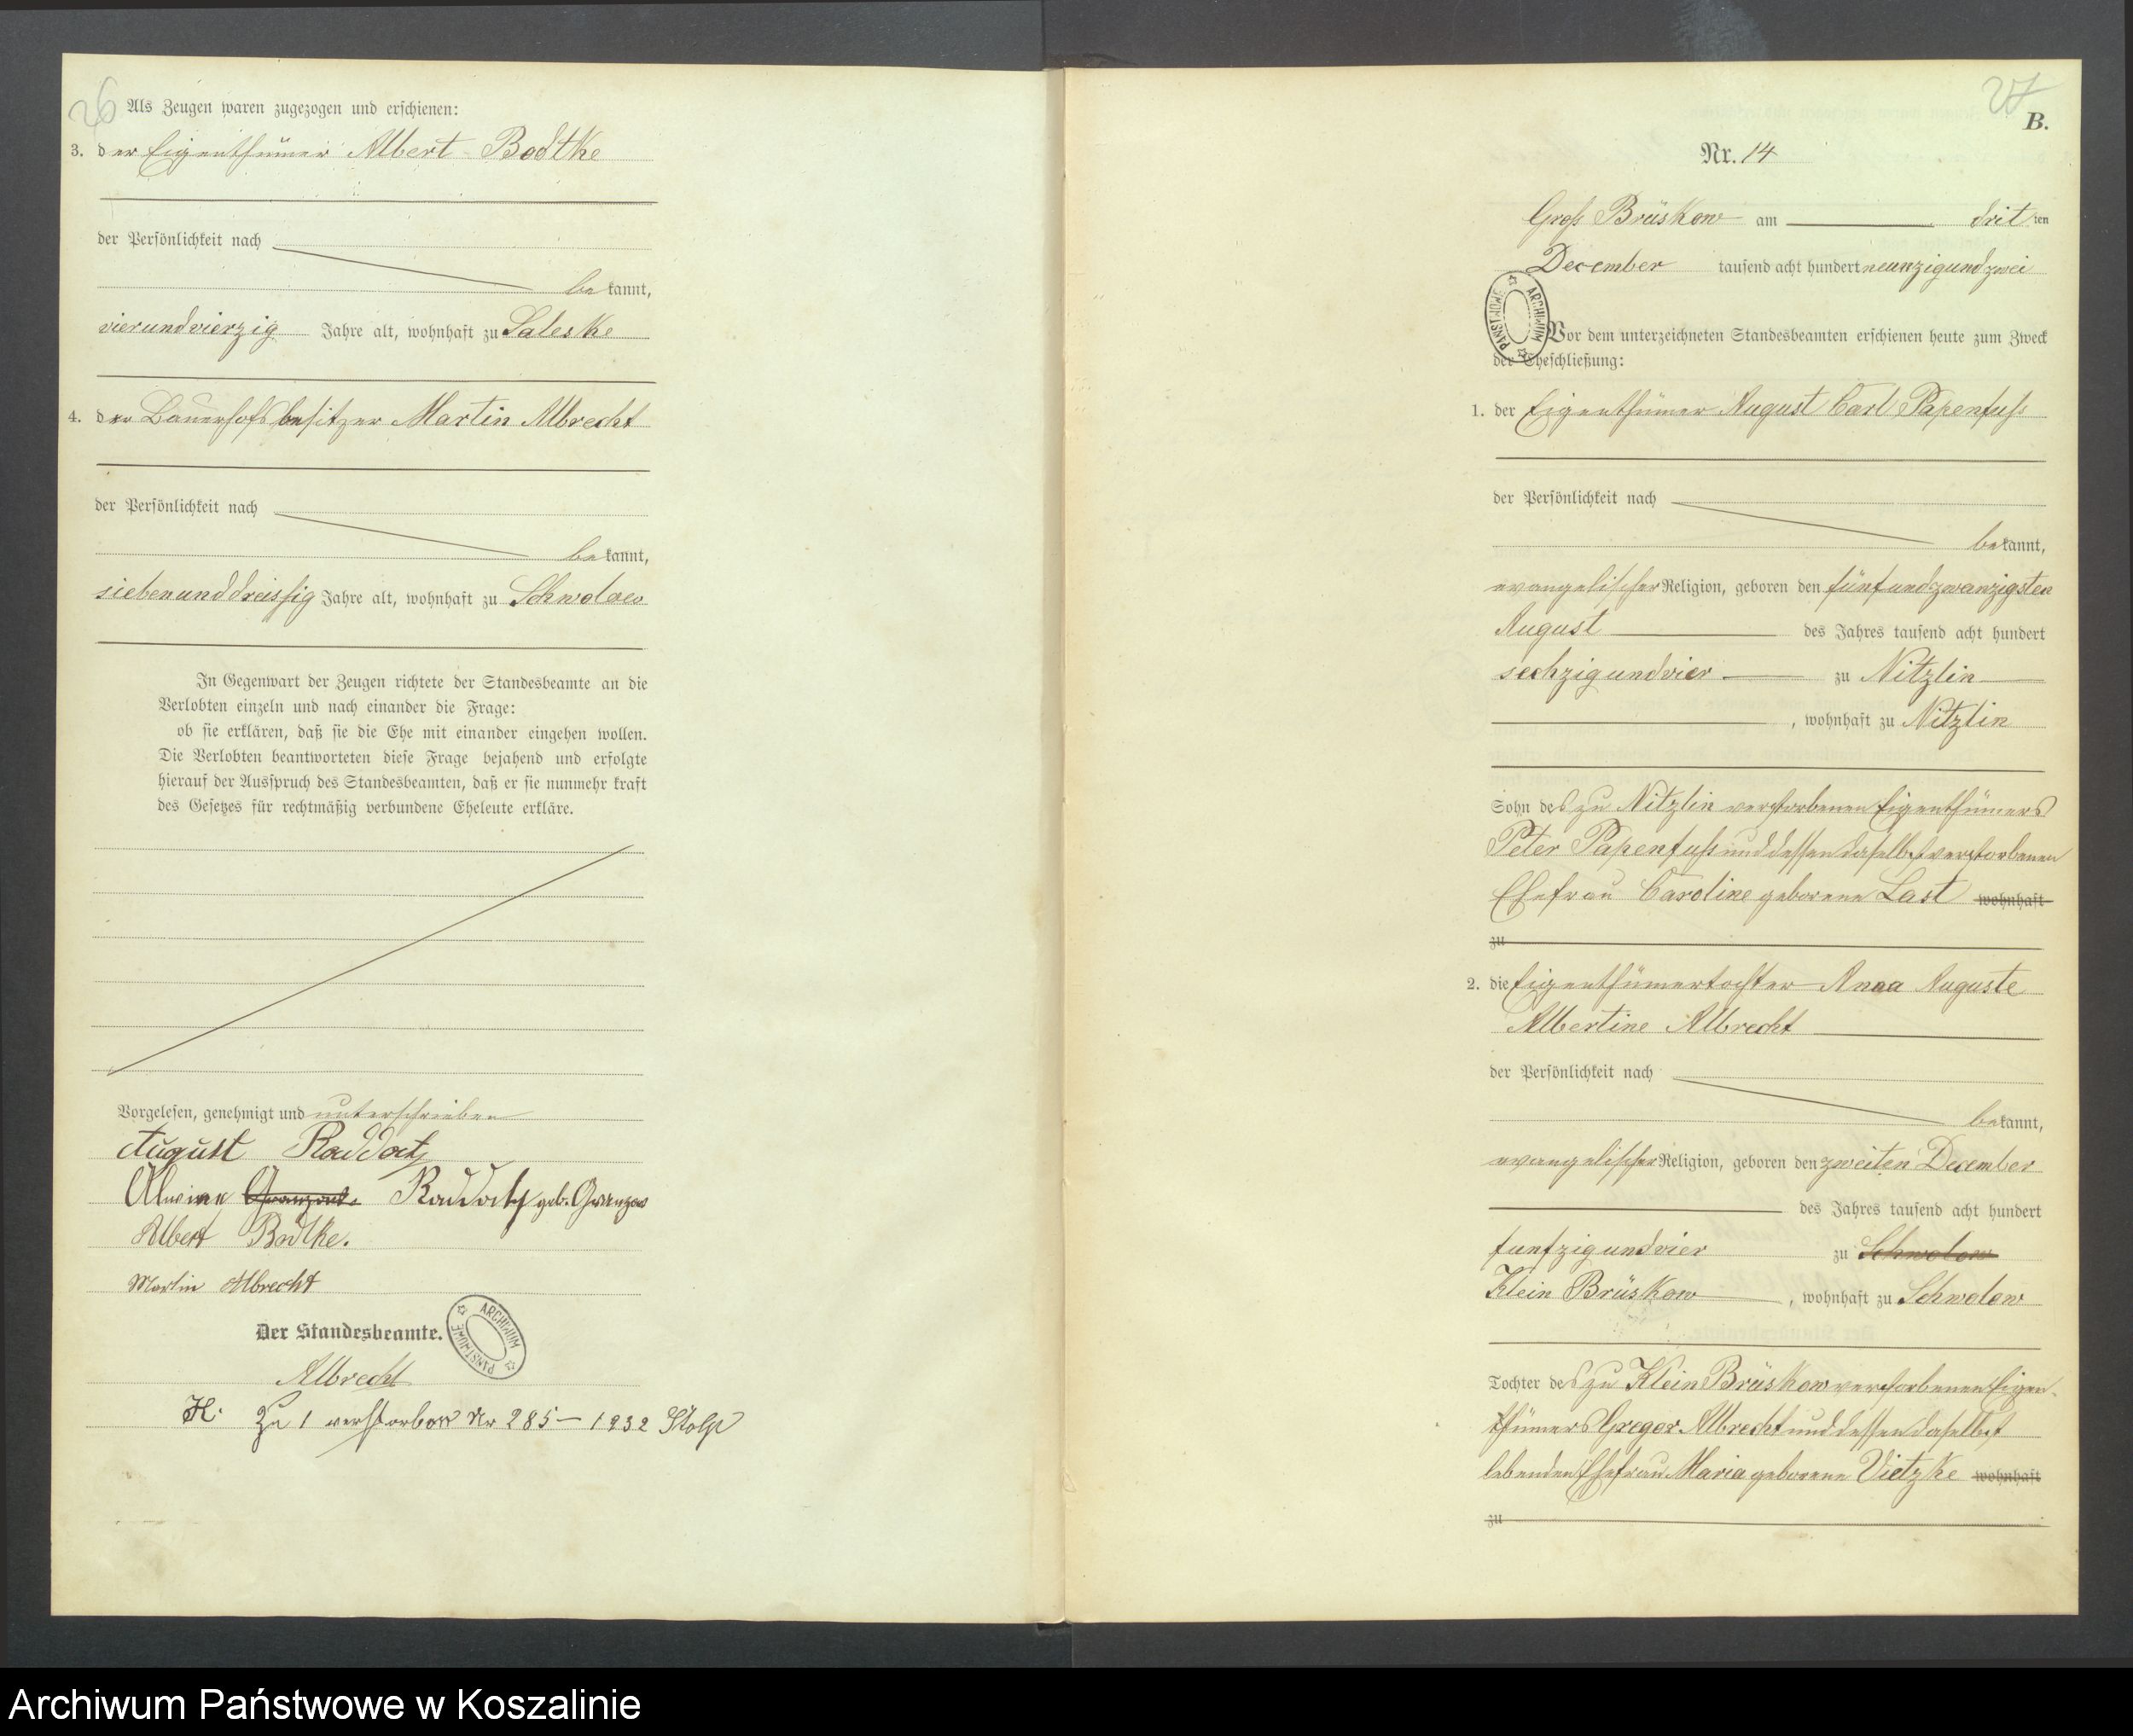 26
Als Zeugen waren zugezogen und erschienen:
3. der Eigenthümer Albert Bodtke
der Persönlichkeit nach
bekannt,
vierundvierzig Jahre alt, wohnhaft zu Saleske
4. der Bauerhofsbesitzer Martin Albrecht
der Persönlichkeit nach
bekannt,
siebenunddreissig Jahre alt, wohnhaft zu Schwolow
In Gegenwart der Zeugen richtete der Standesbeamte an die
Verlobten einzeln und nach einander die Frage:
ob sie erklären, daß sie die Ehe mit einander eingehen wollen.
Die Verlobten beantworteten diese Frage bejahend und erfolgte
hierauf der Ausspruch des Standesbeamten, daß er sie nunmehr kraft
des Gesetzes für rechtmäßig verbundene Eheleute erkläre.
Vorgelesen, genehmigt und unterschrieben
August Raddatz
Alwine Granzow Raddatz geb. Granzow
Albert Bodtke.
Martin Albrecht
Der Standesbeamte.
Albrecht
ARCHIWUM PAŃSTWOWE
H. Zu 1 verstorben Nr 285 – 1932 Stolp
27
B.
Nr. 14
Groß Brüskow am dritten
December tausend acht hundert neunzigundzwei
ARCHIWUM PAŃSTWOWE
Vor dem unterzeichneten Standesbeamten erschienen heute zum Zweck
der Eheschließung:
1. der Eigenthümer August Carl Papenfuß
der Persönlichkeit nach
bekannt,
evangelischer Religion, geboren den fünfundzwanzigsten
August des Jahres tausend acht hundert
sechzigundvier zu Nitzlin
, wohnhaft zu Nitzlin
Sohn des zu Nitzlin verstorbenen Eigenthümers
Peter Papenfuß und dessen daselbst verstorbenen
Ehefrau Caroline geborene Last wohnhaft
zu
2. die Eigenthümertochter Anna Auguste
Albertine Albrecht
der Persönlichkeit nach
bekannt,
evangelischer Religion, geboren den zweiten December
des Jahres tausend acht hundert
funfzigundvier zu Schwolow
Klein Brüskow, wohnhaft zu Schwolow
Tochter des zu Klein Brüskow verstorbenen Eigen-
thümers Gregor Albrecht und dessen daselbst
lebenden Ehefrau Maria geborene Vietzke wohnhaft
zu
Archiwum Państwowe w Koszalinie